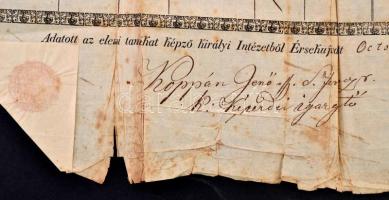 Adatott az elemi tanítat Képző királyi Intézetből Érsekujvár Octo
Koppán Jenő
K. Képezdei igazgtó